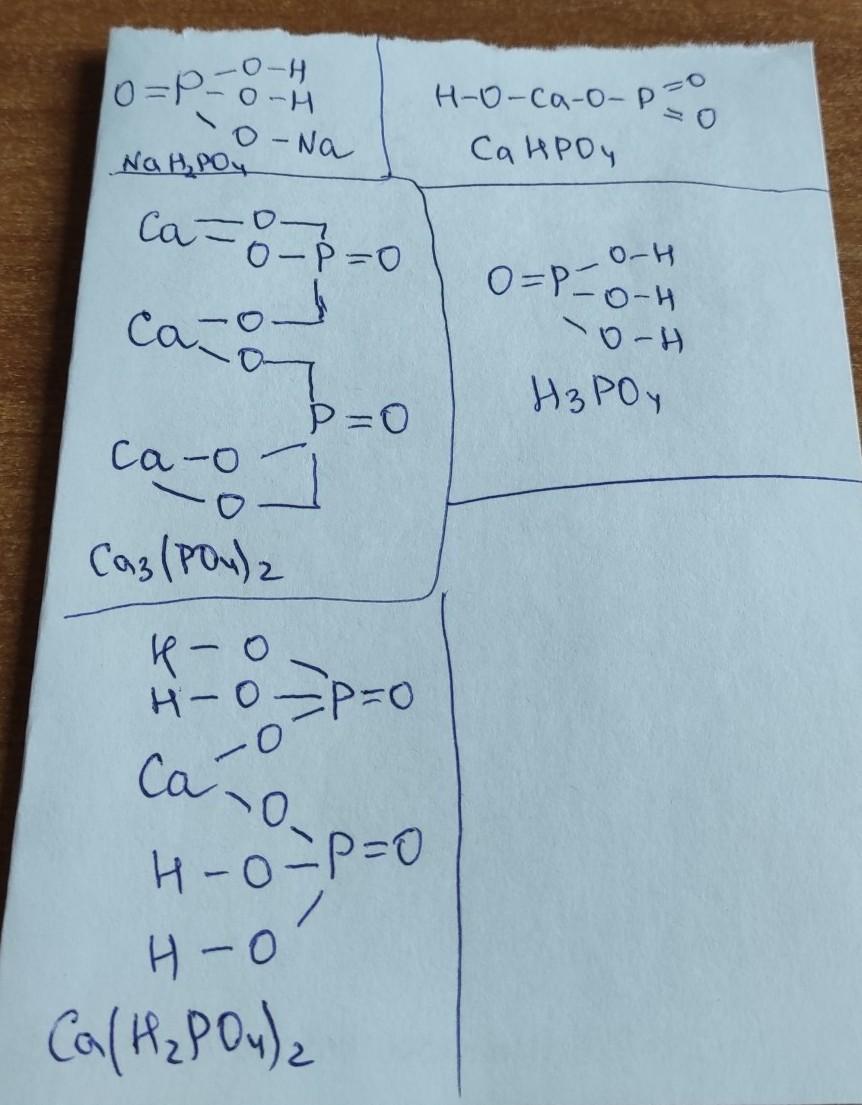 O=P-O-H
-O-H
O-Na
NaH₂PO₄
H-O-Ca-O-P=O
=O
CaHPO₄
Ca=O
O-P=O
Ca-O
O
P=O
Ca-O
O
Ca₃(PO₄)₂
O=P-O-H
-O-H
O-H
H₃PO₄
H-O
H-O-P=O
O
Ca
O
H-O-P=O
H-O
Ca(H₂PO₄)₂